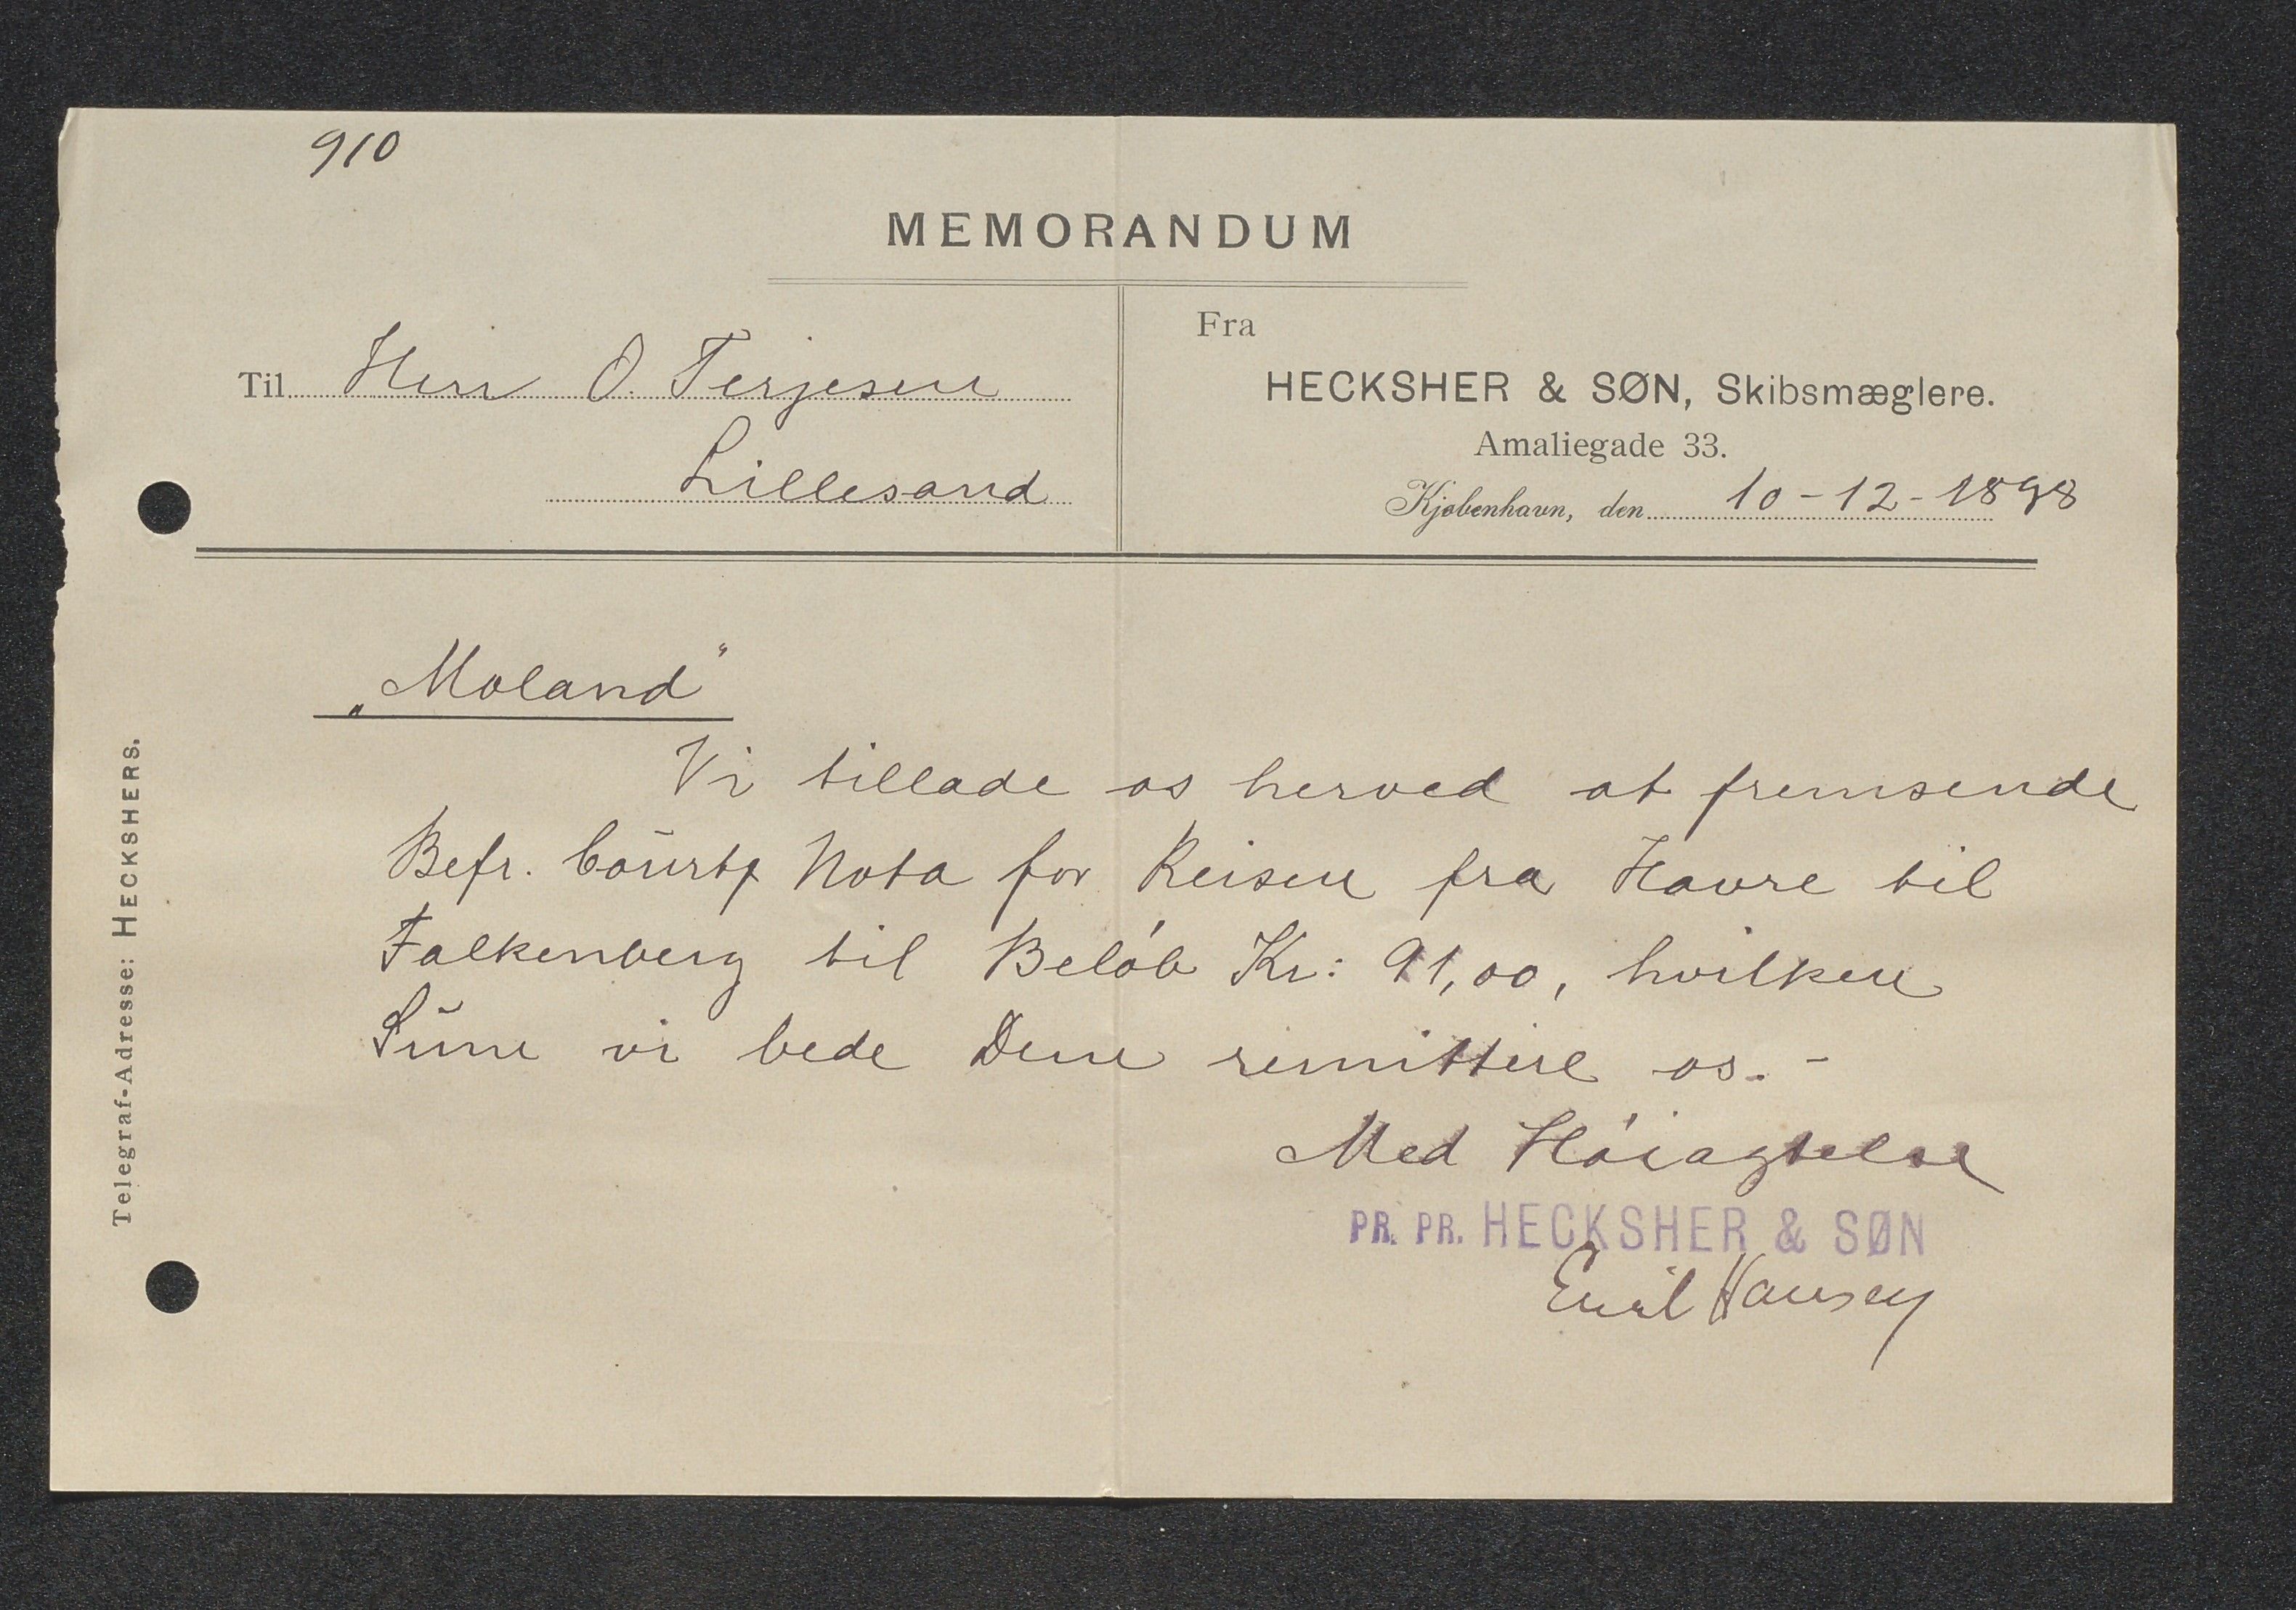 910
MEMORANDUM
Til Herr O. Terjesen
Lillesand
Fra
HECKSHER & SØN, Skibsmæglere.
Amaliegade 33.
Kjøbenhavn, den 10-12-1898
„Moland“
Vi tillade os herved at fremsende
Befr. Courtg Nota for Reisen fra Havre til
Falkenberg til Beløb Kr: 91,00, hvilken
Sum vi bede Dem remittere os.-
Med Høiagtelse
PR. PR. HECKSHER & SØN
Emil Hansen
Telegraf-Adresse: HECKSHERS.